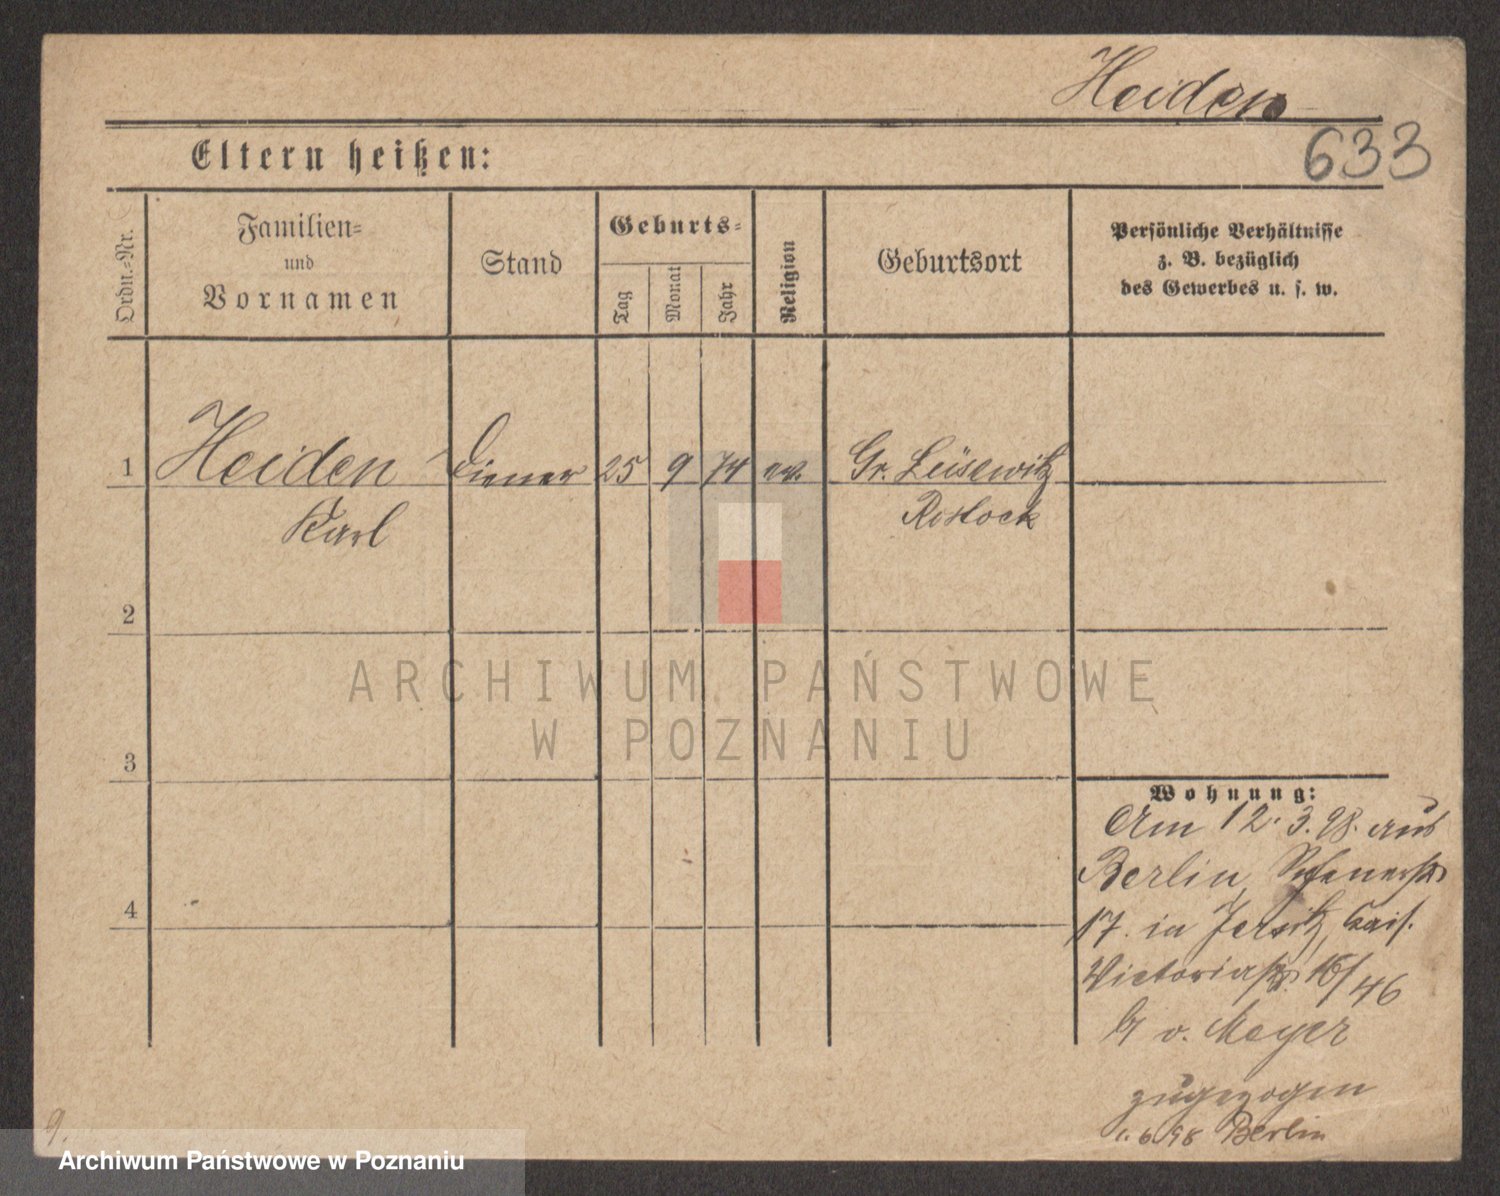 Heiden
633
Eltern heißen:
Ordn.-Nr.
Familien-
und
Vornamen
Stand
Geburts-
Tag
Monat
Jahr
Religion
Geburtsort
Persönliche Verhältnisse
z. B. bezüglich
des Gewerbes u. s. w.
1 Heiden Diener 25 9 74 ev. Gr. Lüsewitz
Karl Rostock
2
ARCHIWUM PAŃSTWOWE
W POZNANIU
3
Wohnung:
Am 12. 3. 98. aus
4
Berlin
17. in Jersitz, Kais.
Victoriastr. 16/46
v. Meyer
zugezogen
1. 6. 98 Berlin
9.
Archiwum Państwowe w Poznaniu